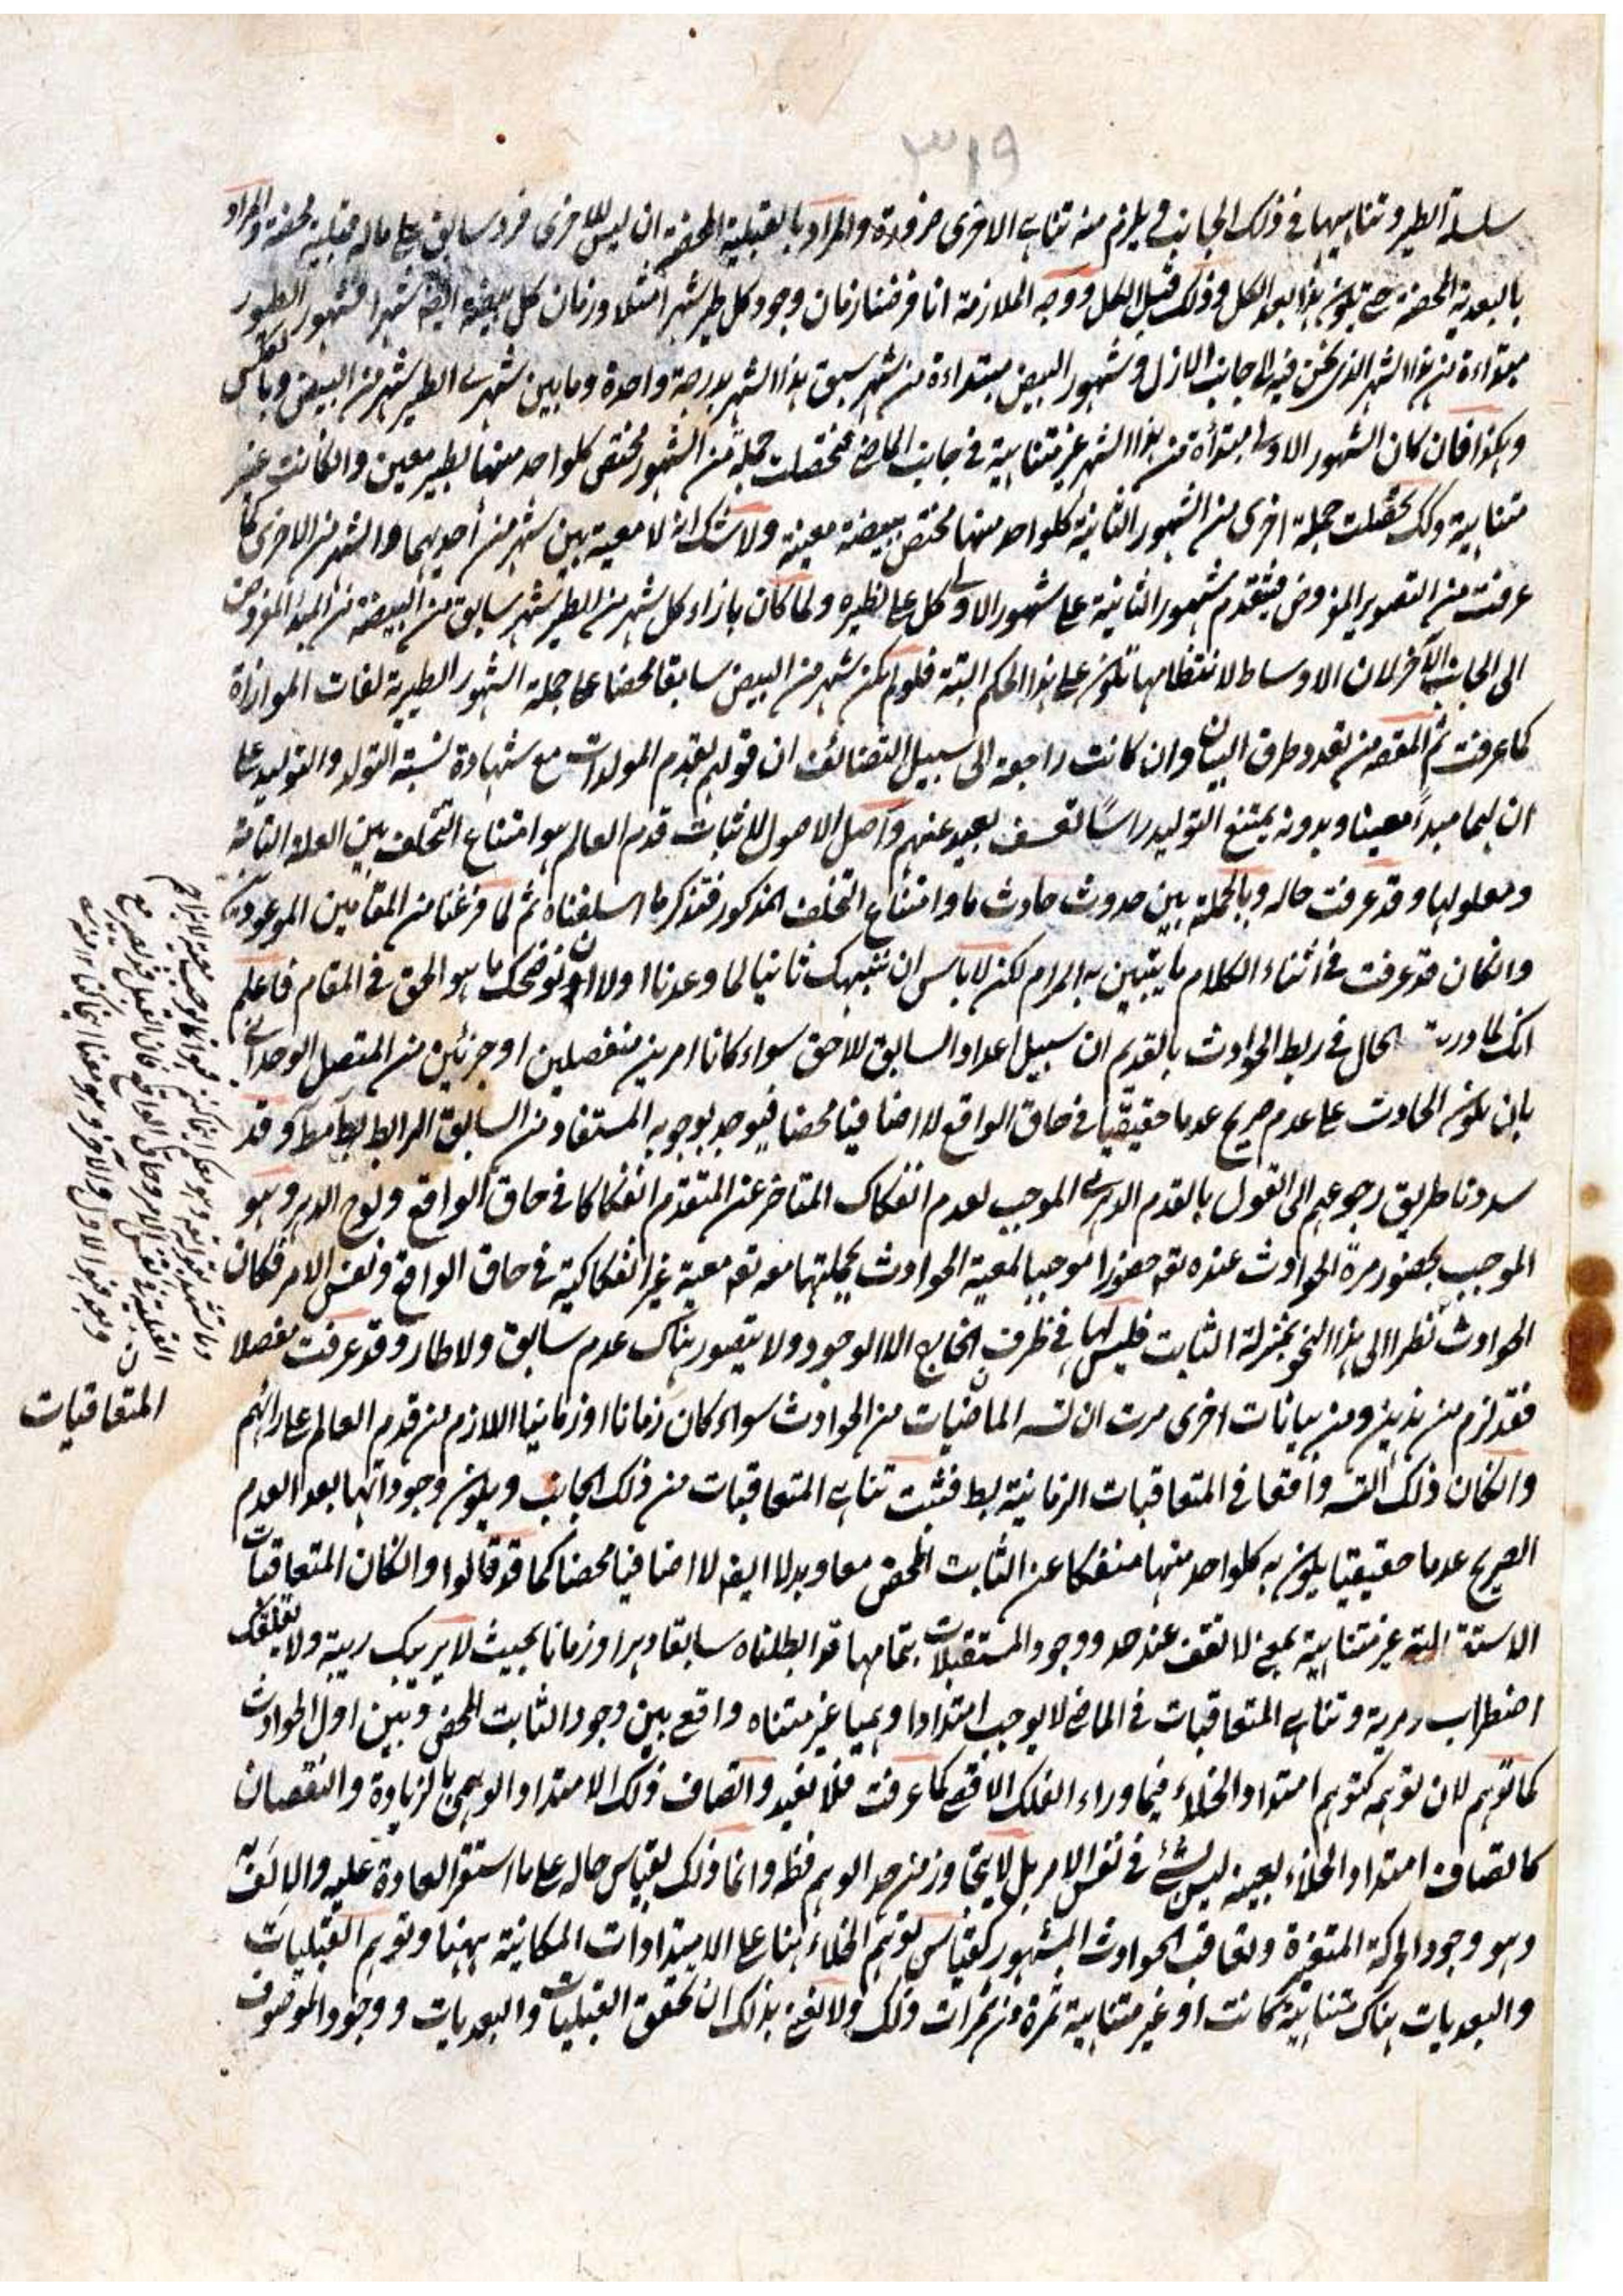 ٣١٩
سلسلة الطير وتناهيها في ذلك الجانب فيلزم منه تناهي الاخرى ضرورة والمراد بالقبلية المحضة ان ليس للاخرى فرد سابق على ماله قبلية محضة والمراد
بالبعدية المحضة حتى يكون هذا بعد الكل وذلك قبل الكل ووجه الملازمة انا فرضنا زمان وجود كل طير شهرا مثلا وزمان كل بيضة ايضا شهرا فشهور الطيور
مبتداءة من هذا الشهر الذي نحن فيه الى جانب الازل وشهور البيض مبتداءة من شهر سبق هذا الشهر بدرجة واحدة وما بين شهري الطير شهر من البيض وبالعكس
وهكذا فان كان الشهور الاولى مبتدأة من هذا الشهر غير متناهية في جانب الماضي فتحصلت جملة من الشهور مختص كلواحد منها بطير معين والكانت غير
متناهية وكذلك تحصلت جملة اخرى من الشهور الثانية كلواحد منها مختص ببيضة معينة ولا شك انه لا معية بين شهر من أحديهما والشهر من الاخرى كما
عرفت من التصوير المفروض فيتقدم شهور الثانية على شهور الاولى كل على نظيره ولما كان بازاء كل شهر من الطير شهر سابق من البيضة من المبدء المفروض
الى الجانب الآخر لان الاوساط لانتظامها تكون على هذا الحكم البتة فلو لم يكن شهر من البيض سابقا محضا على جملة الشهور الطيرية لفات الموازاة
كما عرفت ثم المقصد من تعدد طرق البيان وان كانت راجعة الى سبيل التضائف ان قولهم بقدم المولدات مع شهادة نسبة التولد والتوليد على
ان لهما مبدأ معينا وبدونه يمتنع التوليد راسًا تعسف بعيد عنهم وأصل الاصول لاثبات قدم العالم هو امتناع التخلف بين العلة التامة
ومعلولها وقد عرفت حاله وبالجملة بين حدوث حادث ما وامتناع التخلف المذكور فتذكر ما اسلفناه ثم لما فرغنا من المقامين الموعودين
والكان قد عرفت في اثناء الكلام ما يتبين به المرام لكن لا باس ان ننبهك ثانيا لما وعدنا اولا ان نوضحك ما هو الحق في المقام فاعلم
انك لما دريت الحال في ربط الحوادث بالقديم ان سبيل اعداد السابق للاحق سواء كانا امرين منفصلين او جزئين من المتصل الوحداني
بان يكون الحادث على عدم صريح عدما حقيقيا في حاق الواقع لا اضافيا محضا فيوجد بوجوبه المستفاد من السابق الرابط وقد
سددنا طريق رجوعهم الى القول بالقدم الدهري الموجب لعدم انفكاك المتاخر عن المتقدم انفكاكا في حاق الواقع ولوح الدهر وهو
الموجب بحضور مرة الحوادث عنده تعه حضورا موجبا لمعية الحوادث بجملتها معه تعه معية غير انفكاكية في حاق الواقع ونفس الامر فكان
الحوادث نظرا الى هذا النحو بمنزلة الثابت فليس لها في ظرف الخارج الا الوجود ولا يتصور هناك عدم سابق ولا طار وقد عرفت مفصلا
فقد لزم من هذين ومن بيانات اخرى مرت ان تسه الماضيات من الحوادث سواء كان زمانا او زمانيا اللازم من قدم العالم على رائهم
والكان ذلك التسه واقعا في المتعاقبات الزمانية بط فثبت تناهي المتعاقبات من ذلك الجانب ويكون وجوداتها بعد العدم
الصريح عدما حقيقيا يكون به كلواحد منها منفكا عن الثابت المحض معا وبدلا ايضا لا اضافيا محضا كما قد قالوا والكان المتعاقبات
الاستقبالية غير متناهية بمعنى لا تقف عند حد ووجود المستقبلات بتمامها قد ابطلناه سابقا دهرا وزمانا بحيث لا يريبك ريبة ولا يقلقك
اضطراب ومرية وتناهي المتعاقبات في الماضي لا يوجب امتدادا وهميا غير متناه واقع بين وجود الثابت المحض وبين اول الحوادث
كما توهم لان توهمه كتوهم امتداد الخلاء فيما وراء الفلك الاقصى كما عرفت فلا نفيد واتصاف ذلك الامتداد الوهمي بالزيادة والنقصان
كاتصاف امتداد الخلاء بعينه ليس بشئ في نفس الامر بل لا يتجاوز من حد الوهم فقط وانما ذلك لقياس حاله على ما استقر العادة عليه والالف به
وهو وجود الحركة المتغيرة وتعاقب الحوادث المشهور كقياس توهم الخلاء هناك على الامتدادات المكانية ههنا وتوهم القبليات
والبعديات هناك متناهية كانت او غير متناهية ثمرة من ثمرات ذلك ولا نعني بذلك ان تحقق القبليات والبعديات ووجود الموصوف
المتعاقبات